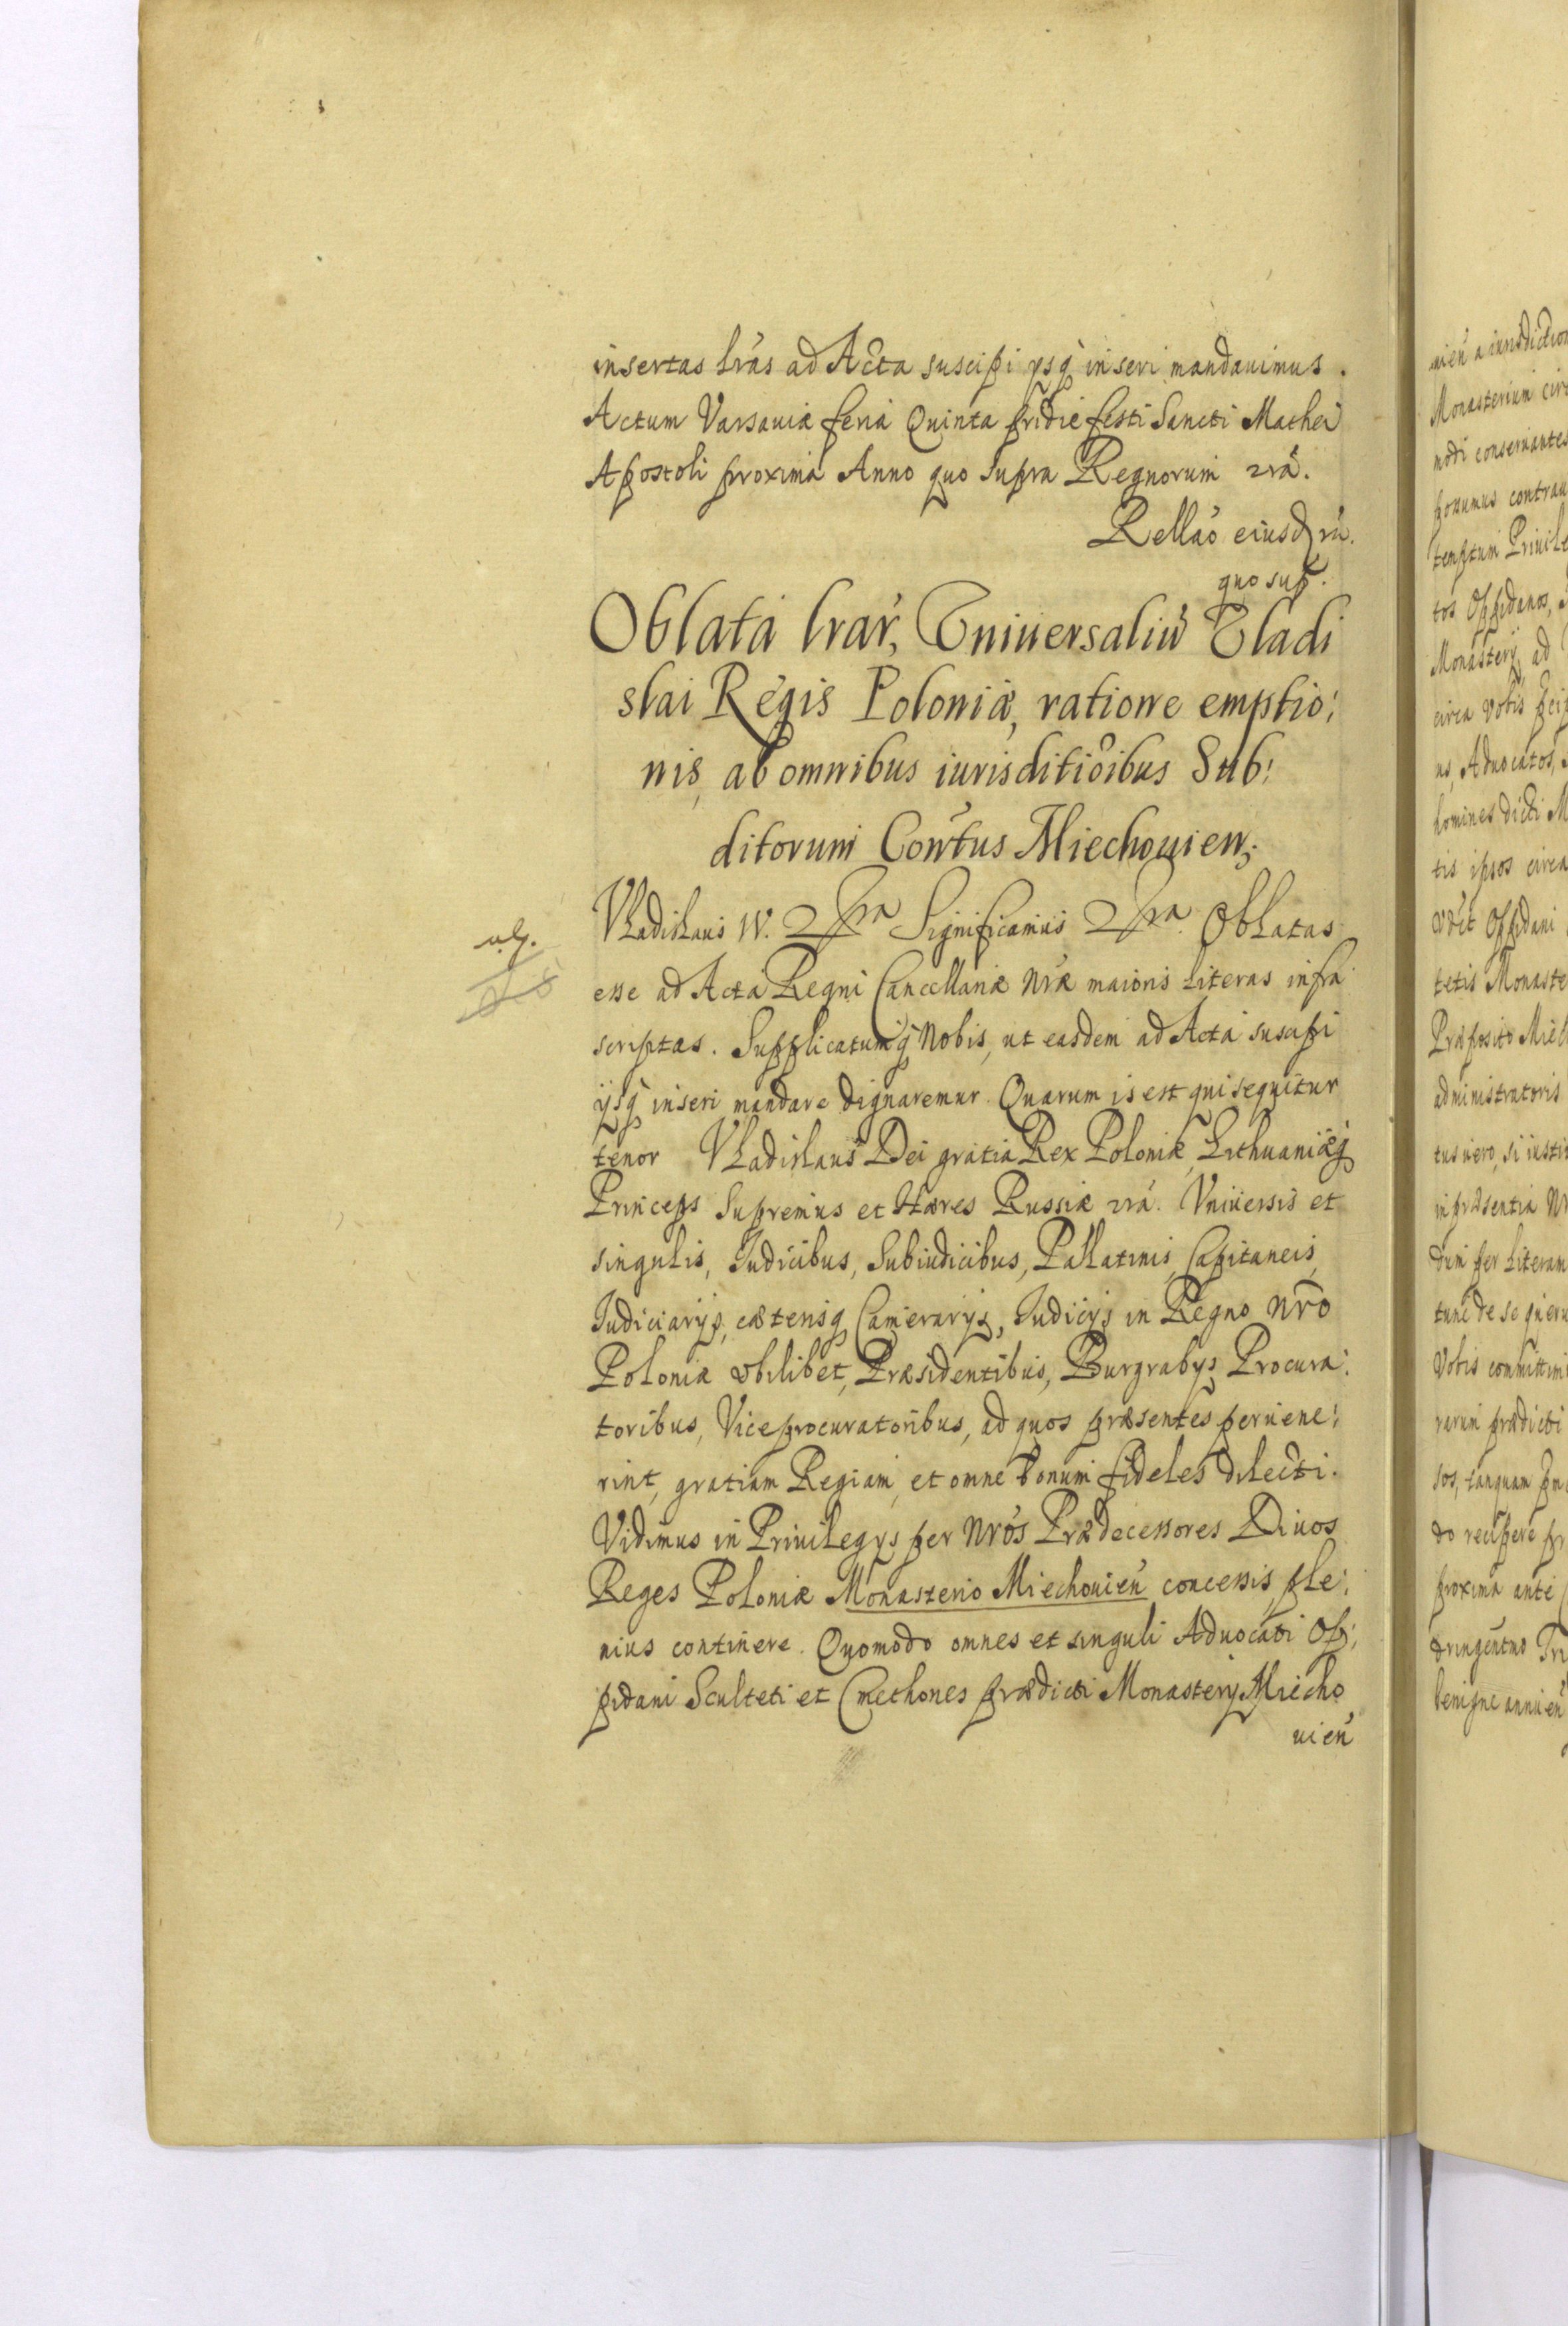 insertas lras ad Acta suscipi ysq inseri mandauimus.
Actum Varsauiæ feria Quinta pridie festi Sancti Mathei
Apostoli proxima Anno quo supra Regnorum
Rellao eiusd
quo sup.
Oblata lrar, Vniuersaliu Vladi
slai Regis Poloniæ, ratione emptio:
nis, ab omnibus iurisditioibus Sub:
ditorum Contus Miechouien;
Vladislaus IV. Significamus Oblatas
esse ad Acta Regni Cancellariæ nræ maioris Literas infra
scriptas. Supplicatumq Nobis, ut easdem ad Acta suscipi
ijsq inseri mandare dignaremur. Quarum is est qui sequitur
tenor Vladislaus Dei gratia Rex Poloniæ, Lithuaniæq
Princeps Supremus et Hæres Russiæ Vniuersis et
singulis, Iudicibus, Subiudicibus, Pallatinis, Capitaneis,
Iudiciarijs, cæterisq Camerarijs, Iudicijs in Regno nro
Poloniæ vbilibet, Præsidentibus, Burgrabys Procura:
toribus, Viceprocuratoribus, ad quos præsentes peruene:
rint, gratiam Regiam, et omne bonum fideles dilecti.
Vidimus in Priuilegys per nros Prædecessores Diuos
Reges Poloniæ Monasterio Miechouien concessis, ple:
nius continere. Quomodo omnes et singuli Aduocati Op:
pidani Sculteti et Cmethones prædicti Monasterij Miecho
uien
uien a iurisdiction
Monasterium
modi conseruantes
ponumus
temptum
tos Oppidanos,
Monasterij, ad
circa Vobis
Aduocatos,
homines dicti
tis ipsos circa
Oppidani
tetis
Præposito
administratoris
tus uero, si
in præsentia
dum per Literam
tunc de se
Vobis
rarum prædicti
sos, tanquam
do
proxima ante
benigne